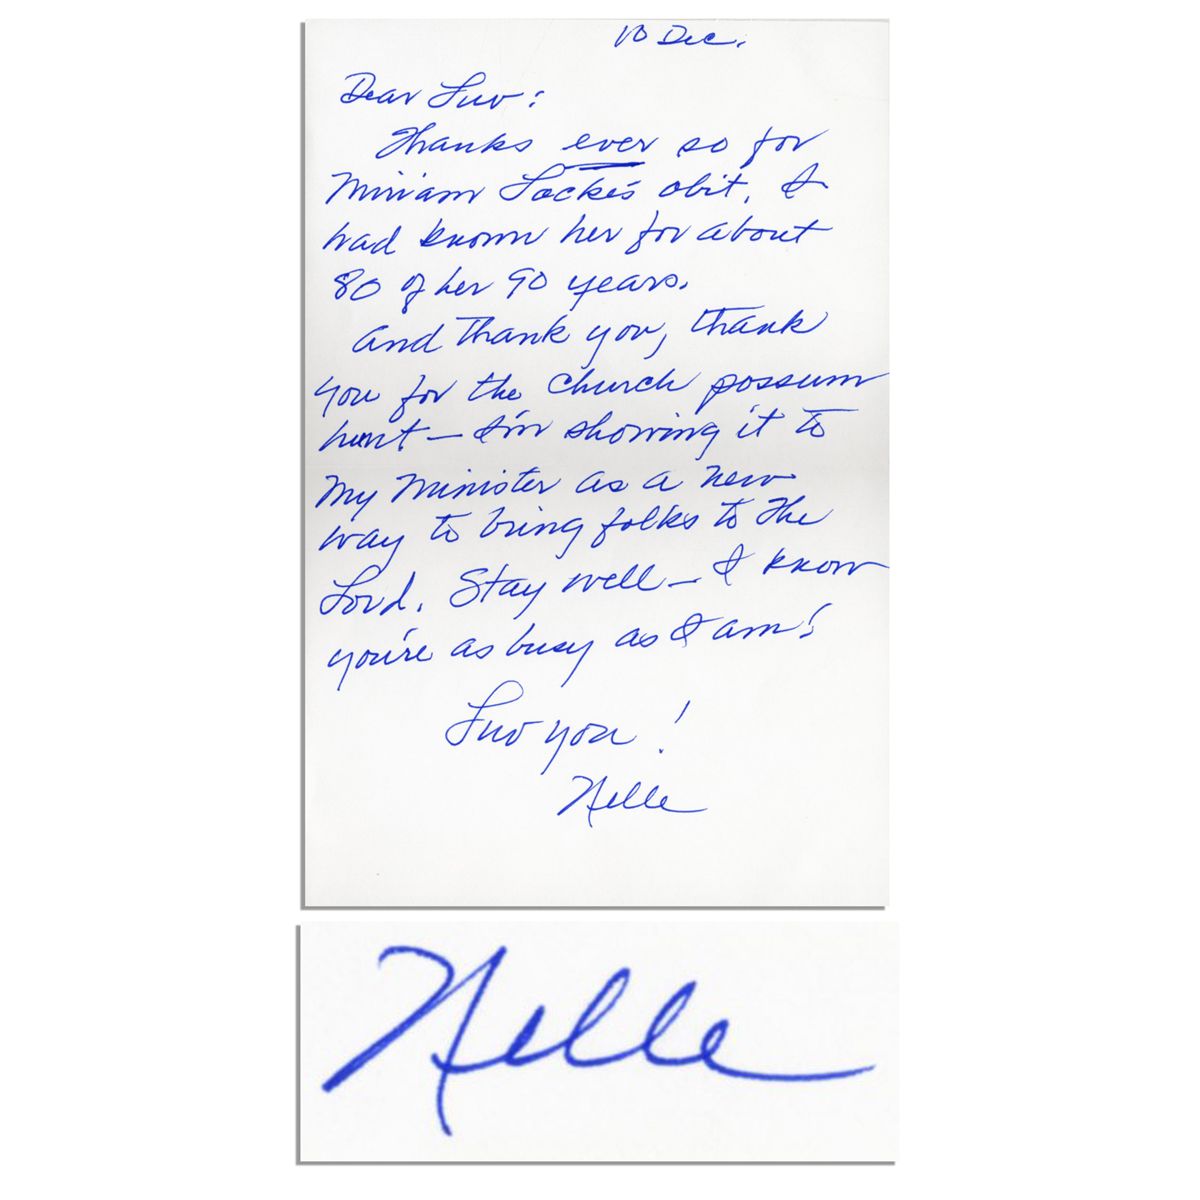 10 Dec.
Dear Luv:
Thanks ever so for
Miriam Locke's obit. I
had known her for about
80 of her 90 years.
And thank you, thank
you for the church possum
hunt — I'm showing it to
my minister as a new
way to bring folks to the
Lord. Stay well — I know
you're as busy as I am!
Luv you!
Nelle
Nelle